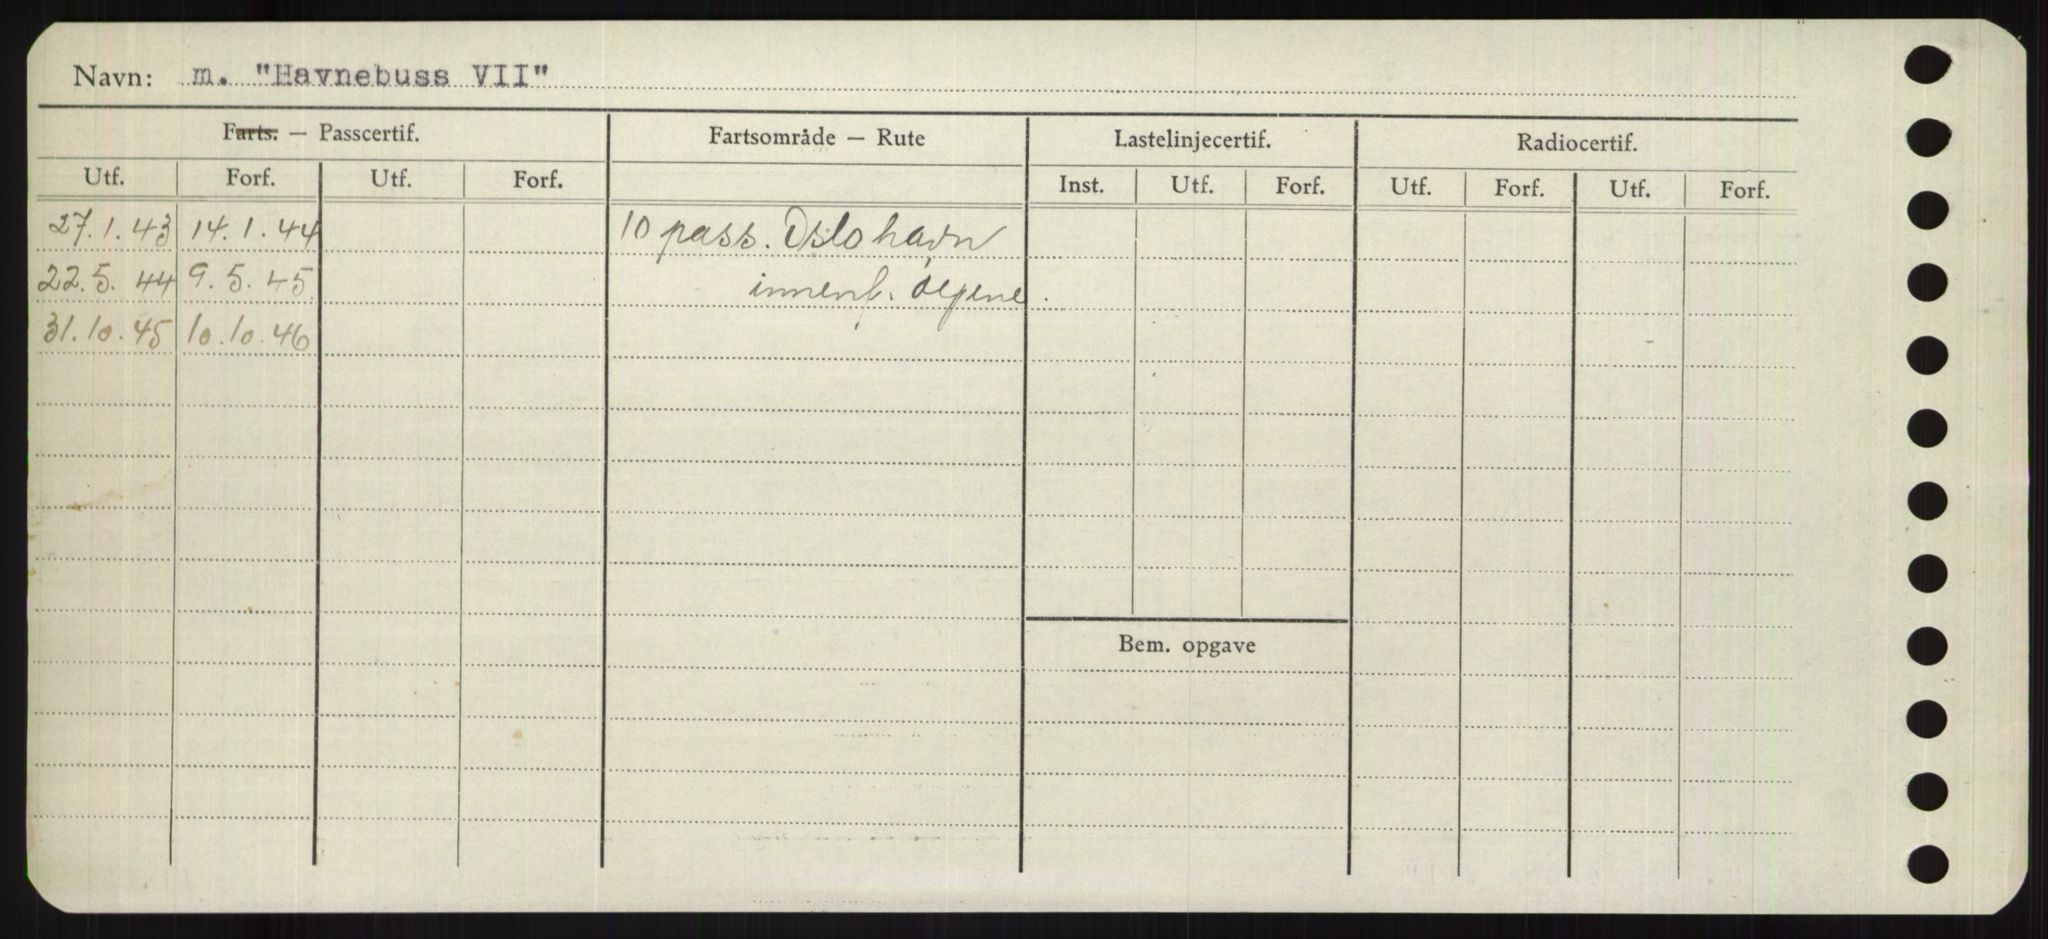 Navn: m. "Havnebuss VII"
Farts. — Passcertif. Fartsområde — Rute Lastelinjecertif. Radiocertif.
Utf. Forf. Utf. Forf. Inst. Utf. Forf. Utf. Forf. Utf. Forf.
27.1.43 14.1.44 10 pass. Oslo havn
22.5.44 9.5.45 innenf. øyene.
31.10.45 10.10.46
Bem. opgave